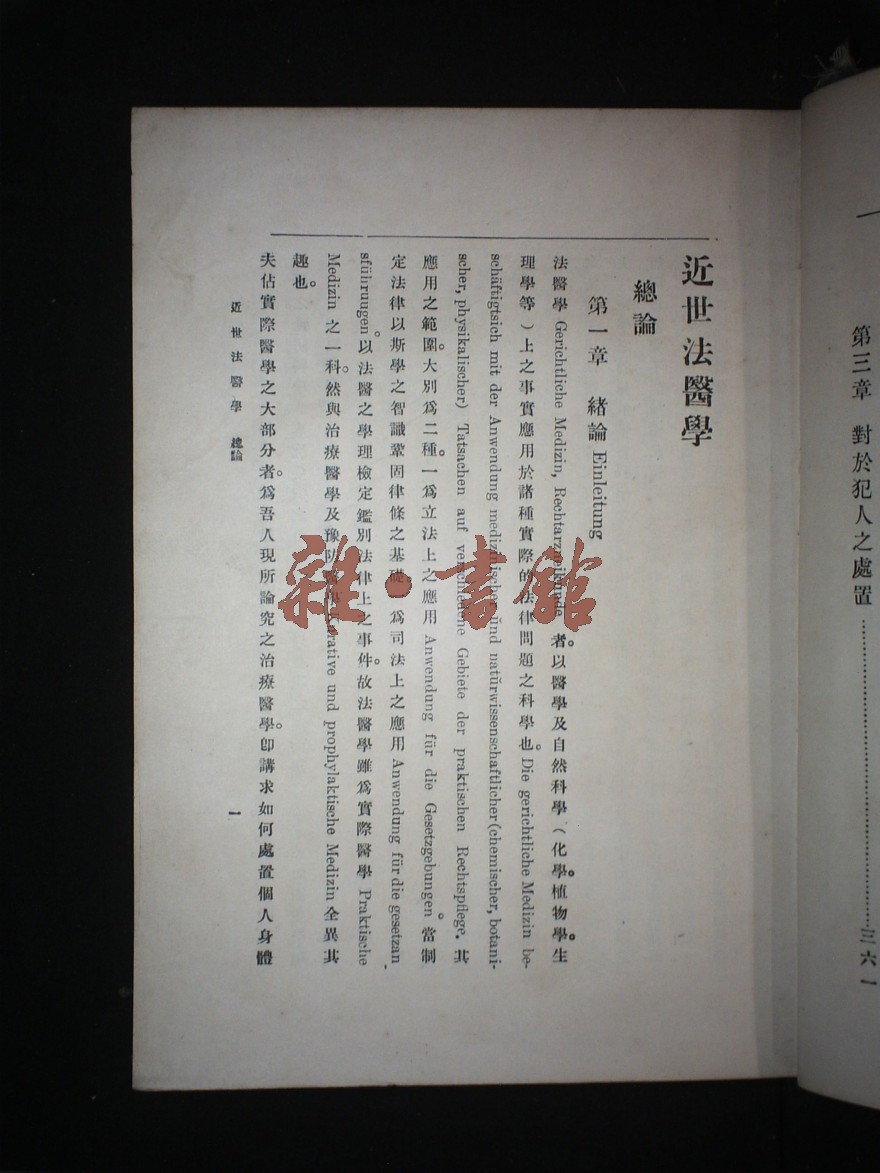 一
第三章 對於犯人之處置……三六一
近世法醫學
總論
第一章 緒論 Einleitung
法醫學 Gerichtliche Medizin, Rechtarzneikunde 者。以醫學及自然科學（化學。植物學。生
理學等）上之事實應用於諸種實際的法律問題之科學也。Die gerichtliche Medizin be-
schäftigtsich mit der Anwendung medizinischer und natürwissenschaftlicher (chemischer, botani-
scher, physikalischer) Tatsachen auf verschiedene Gebiete der praktischen Rechtspflege. 其
應用之範圍。大別爲二種。一爲立法上之應用 Anwendung für die Gesetzgebungen。當制
定法律以斯學之智識鞏固律條之基礎。爲司法上之應用 Anwendung für die gesetzan-
sführungen。以法醫之學理檢定鑑別法律上之事件。故法醫學雖爲實際醫學 Praktische
Medizin 之一科。然與治療醫學及豫防醫學 Kurative und prophylaktische Medizin 全異其
趣也。
夫佔實際醫學之大部分者。爲吾人現所論究之治療醫學。卽講求如何處置個人身體
近世法醫學 總論
一
雜·書館